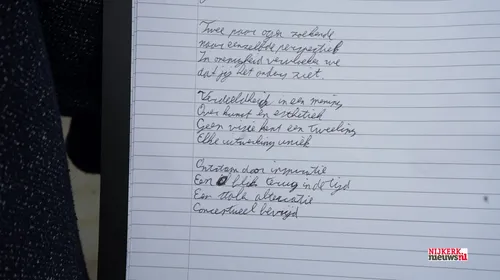 Twee paar ogen zoekende
naar eenzelfde perspectief
In onenigheid verwikkeld we
dat jij het anders ziet.
Verdeeldheid in een mening
Over kunst en esthetiek
Geen visie kent een tweeling
Elke uitwerking uniek
Ontstaan door inspiratie
Een blik terug in de tijd
Een stalk alteratie
Conceptueel bevrijd
NIJKERK
nieuws.nl